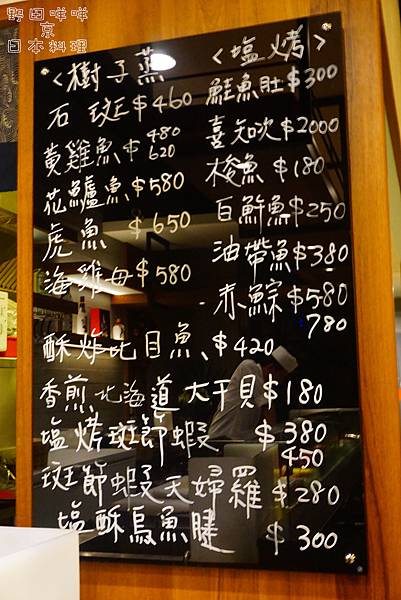 野田咩咩
京
日本料理
<樹子蒸
石斑$460
黄雞魚$480
620
花鱸魚$580
虎魚 $650
海雞母$580
<塩烤>
鮭魚肚$300
喜知次$2000
梭魚$180
白鯧魚$250
油帶魚$380
赤鯮$580
780
酥炸比目魚、$420
香煎北海道大干貝$180
塩烤斑節蝦 $380
450
斑節蝦天婦羅$280
塩酥烏魚腱 $300